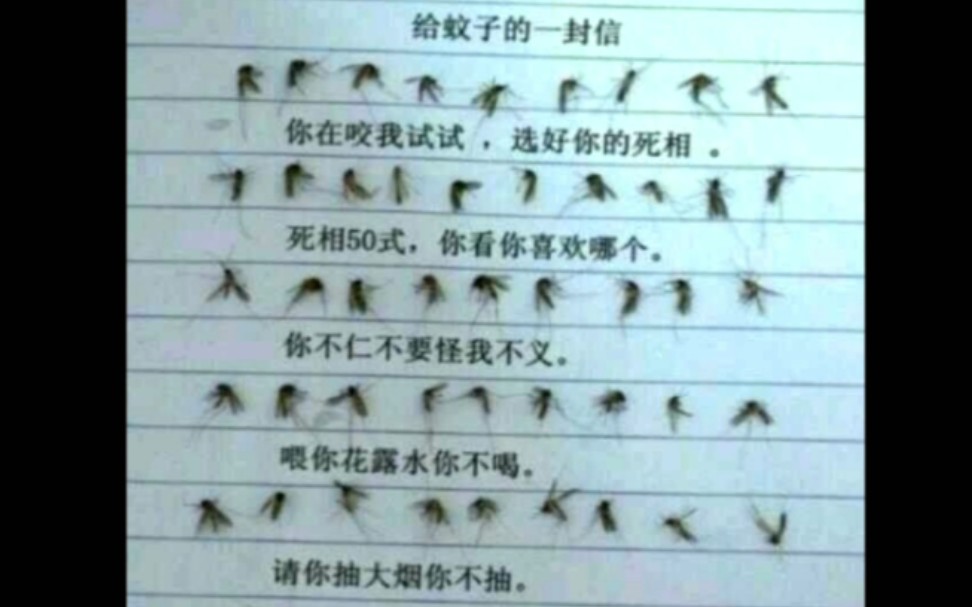 给蚊子的一封信
你在咬我试试，选好你的死相。
死相50式，你看你喜欢哪个。
你不仁不要怪我不义。
喂你花露水你不喝。
请你抽大烟你不抽。